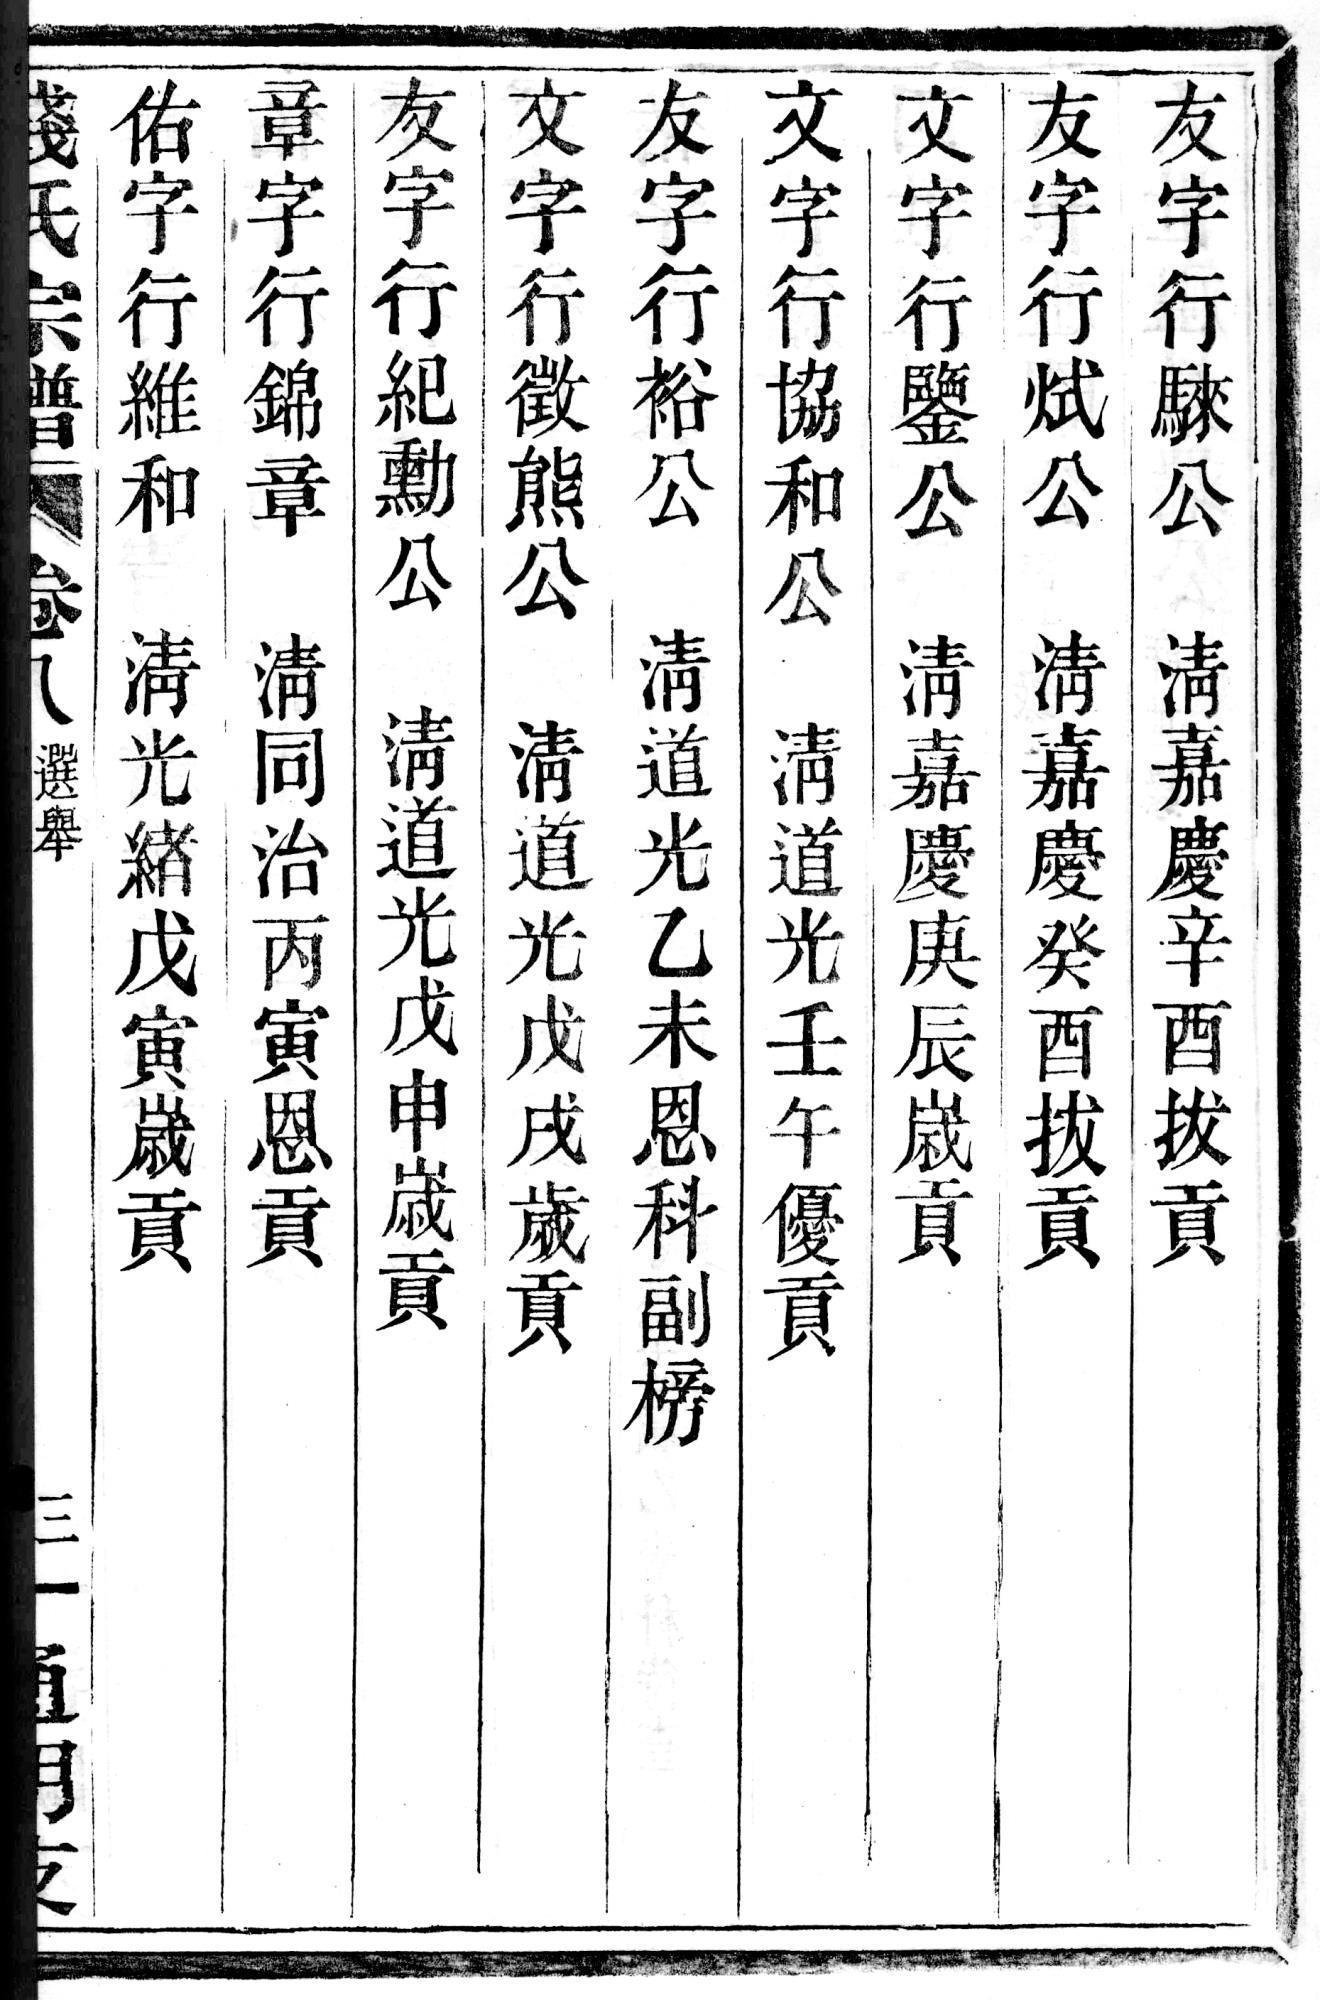 友字行騋公　淸嘉慶辛酉拔貢
友字行烒公　淸嘉慶癸酉拔貢
文字行鑒公　淸嘉慶庚辰歲貢
文字行協和公　淸道光壬午優貢
友字行裕公　淸道光乙未恩科副榜
文字行徵熊公　淸道光戊戌歲貢
友字行紀勳公　淸道光戊申歲貢
章字行錦章　淸同治丙寅恩貢
佑字行維和　淸光緒戊寅歲貢
錢氏宗譜　卷八　選舉　三一　通明支